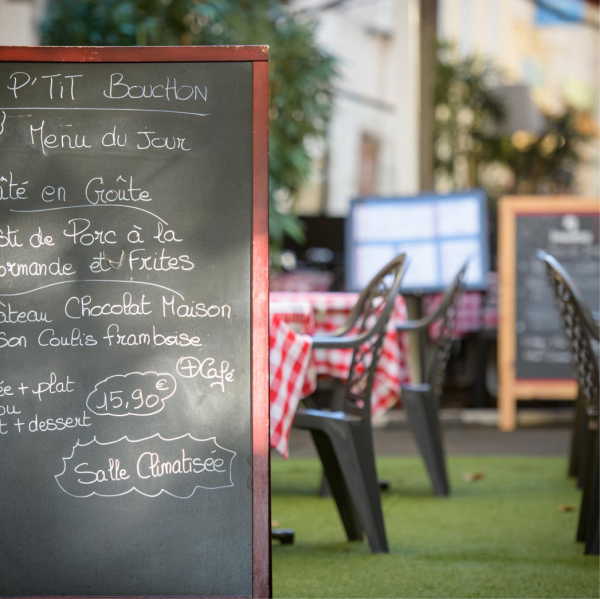 P'TiT Bouchon
Menu du Jour
âté en Goûte
sti de Porc à la
ormande et Frites
âteau Chocolat Maison
son Coulis framboise
+ Café
ée + plat
15,90€
ou
t + dessert
Salle Climatisée